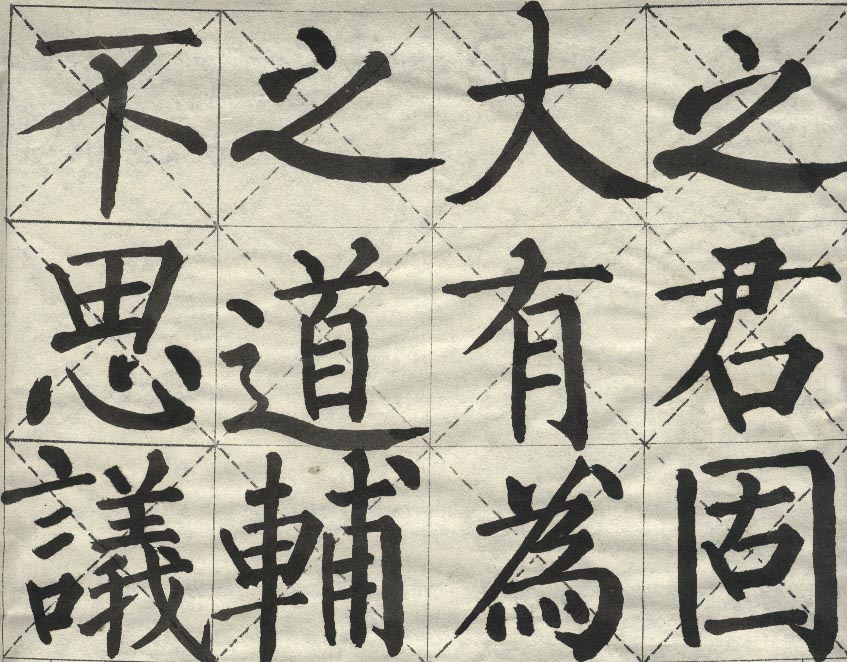 之君固
大有為
之道輔
不思議